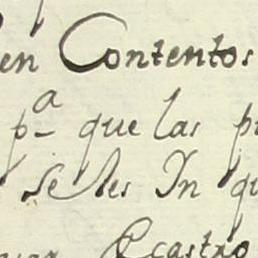 en Contentos
pa que las p
se les In qu
castro